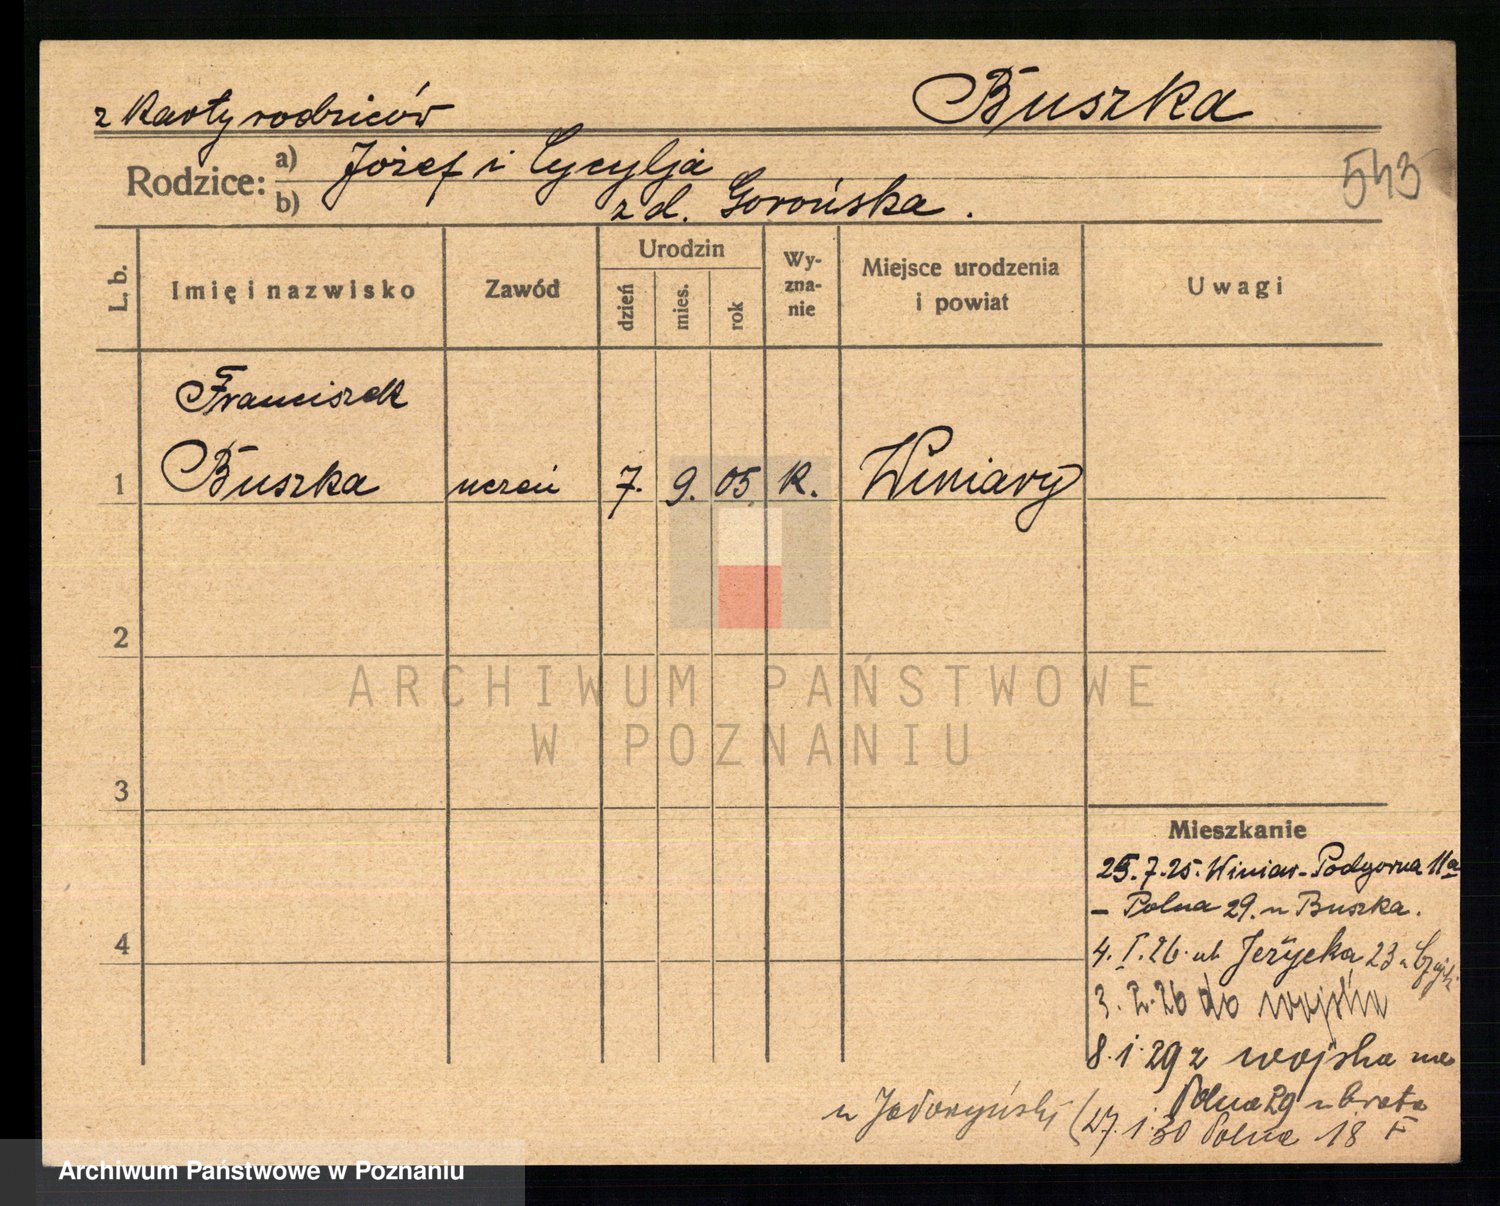 z karty rodziców
Buszka
Rodzice: a) Józef i Cycylja
b) z d. Gorońska.
543
L. b.
Imię i nazwisko
Zawód
Urodzin
dzień
mies.
rok
Wy-
zna-
nie
Miejsce urodzenia
i powiat
Uwagi
Franciszek
1 Buszka uczeń 7. 9. 05 k. Winiary
2
3
4
ARCHIWUM PAŃSTWOWE
W POZNANIU
Mieszkanie
25.7.25. Winiar-Podgorna 11a
- Polna 29. u Buszka.
4. I. 26. ul Jeżycka 23 u
3. 2. 26 do wojska
8. 1. 29 z wojska na
Polna 29 u brata
27. 1. 30 Polna 18
Archiwum Państwowe w Poznaniu